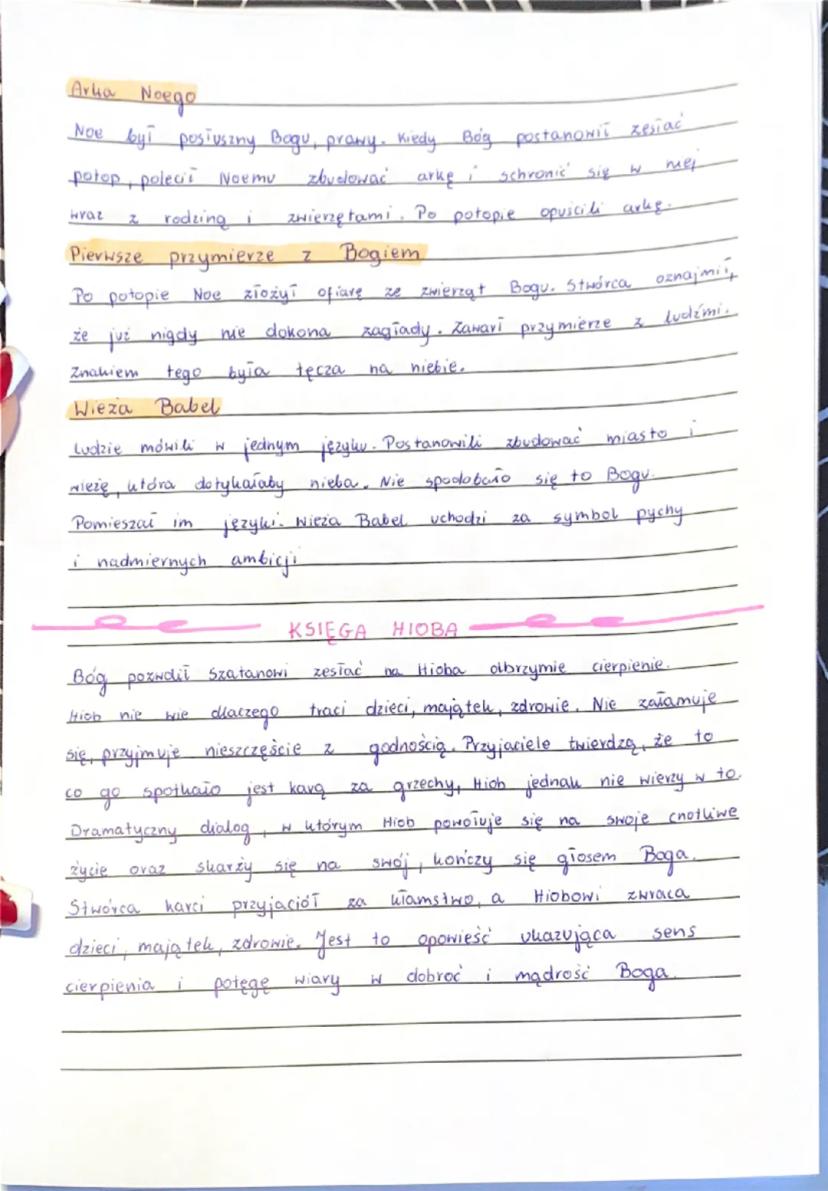 Arka Noego
Noe był posłuszny Bogu, prawy. Kiedy Bóg postanowił zesłać
potop, polecił Noemu zbudować arkę i schronić się w niej
wraz z rodziną i zwierzętami. Po potopie opuścili arkę.
Pierwsze przymierze z Bogiem
Po potopie Noe złożył ofiarę ze zwierząt Bogu. Stwórca oznajmił,
że już nigdy nie dokona zagłady. Zawarł przymierze z ludźmi.
Znakiem tego była tęcza na niebie.
Wieża Babel
Ludzie mówili w jednym języku. Postanowili zbudować miasto i
wieżę, która dotykałaby nieba. Nie spodobało się to Bogu.
Pomieszał im języki. Wieża Babel uchodzi za symbol pychy
i nadmiernych ambicji
KSIĘGA HIOBA
Bóg pozwolił Szatanowi zesłać na Hioba olbrzymie cierpienie.
Hiob nie wie dlaczego traci dzieci, majątek, zdrowie. Nie załamuje
się, przyjmuje nieszczęście z godnością. Przyjaciele twierdzą, że to
co go spotkało jest karą za grzechy, Hiob jednak nie wierzy w to.
Dramatyczny dialog, w którym Hiob powołuje się na swoje cnotliwe
życie oraz skarży się na swój, kończy się głosem Boga.
Stwórca karci przyjaciół za kłamstwo, a Hiobowi zwraca
dzieci, majątek, zdrowie. Jest to opowieść ukazująca sens
cierpienia i potęgę wiary w dobroć i mądrość Boga.